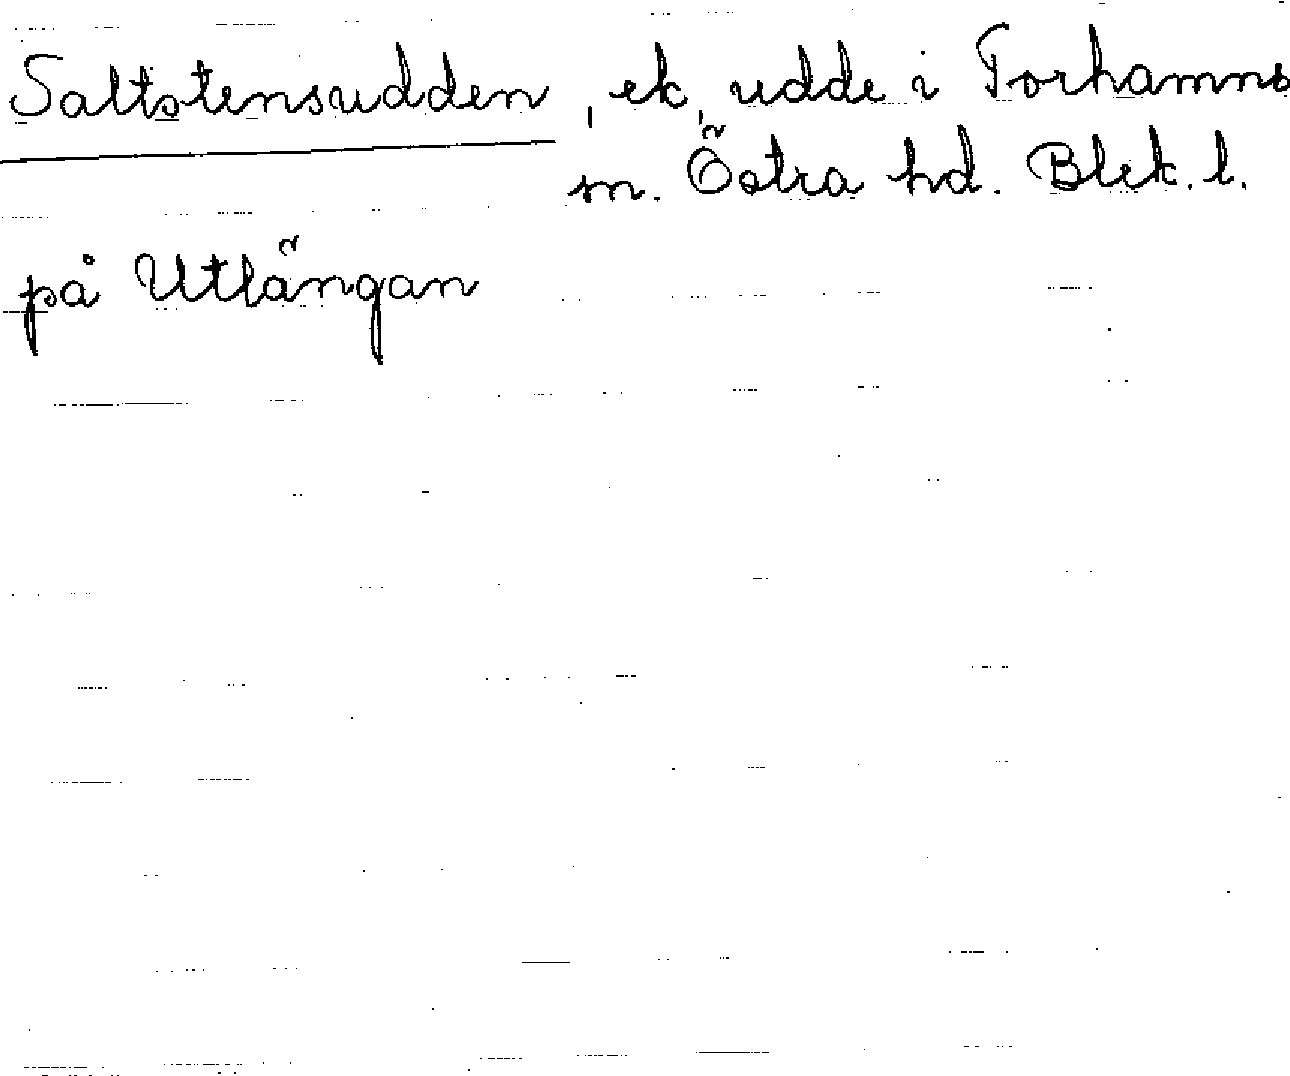 Saltstensudden, ek, udde i Torhamns
sn. Östra hd. Blek. l.
på Utlängan